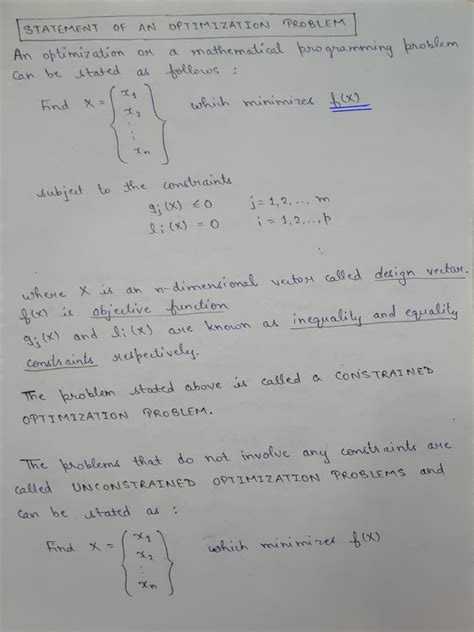 STATEMENT OF AN OPTIMIZATION PROBLEM
An optimization or a mathematical programming problem
can be stated as follows :
Find X = { x1 which minimizes f(X)
x2
⋮
xn }
subject to the constraints
gj(X) ≤ 0 j = 1,2,..., m
li(X) = 0 i = 1,2,...,p
where X is an n-dimensional vector called design vector.
f(X) is objective function
gj(X) and li(X) are known as inequality and equality
constraints respectively.
The problem stated above is called a CONSTRAINED
OPTIMIZATION PROBLEM.
The problems that do not involve any constraints are
called UNCONSTRAINED OPTIMIZATION PROBLEMS and
can be stated as :
Find X = { x1 which minimizes f(X)
x2
⋮
xn }